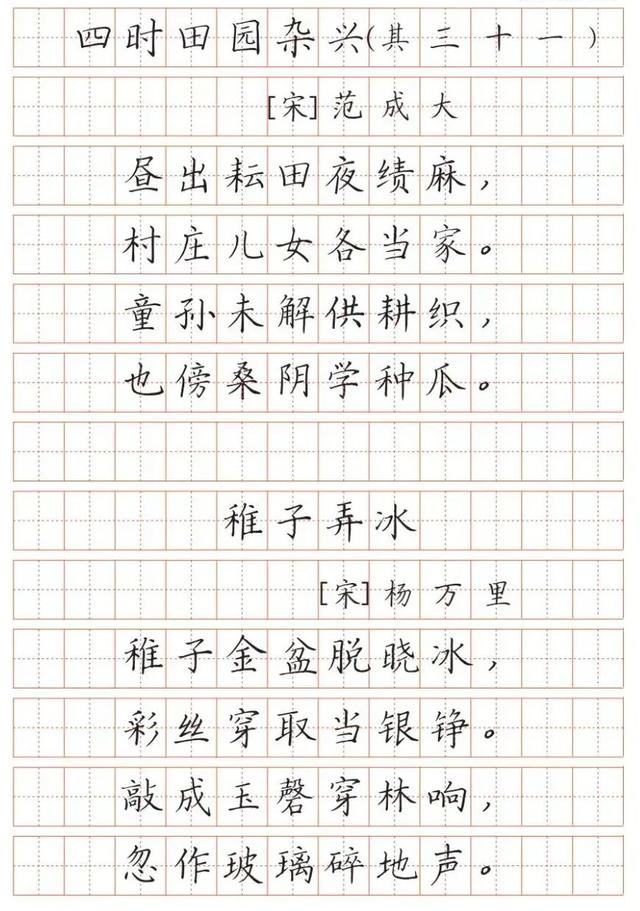 四时田园杂兴(其三十一)
[宋]范成大
昼出耘田夜绩麻，
村庄儿女各当家。
童孙未解供耕织，
也傍桑阴学种瓜。
稚子弄冰
[宋]杨万里
稚子金盆脱晓冰，
彩丝穿取当银铮。
敲成玉磬穿林响，
忽作玻璃碎地声。